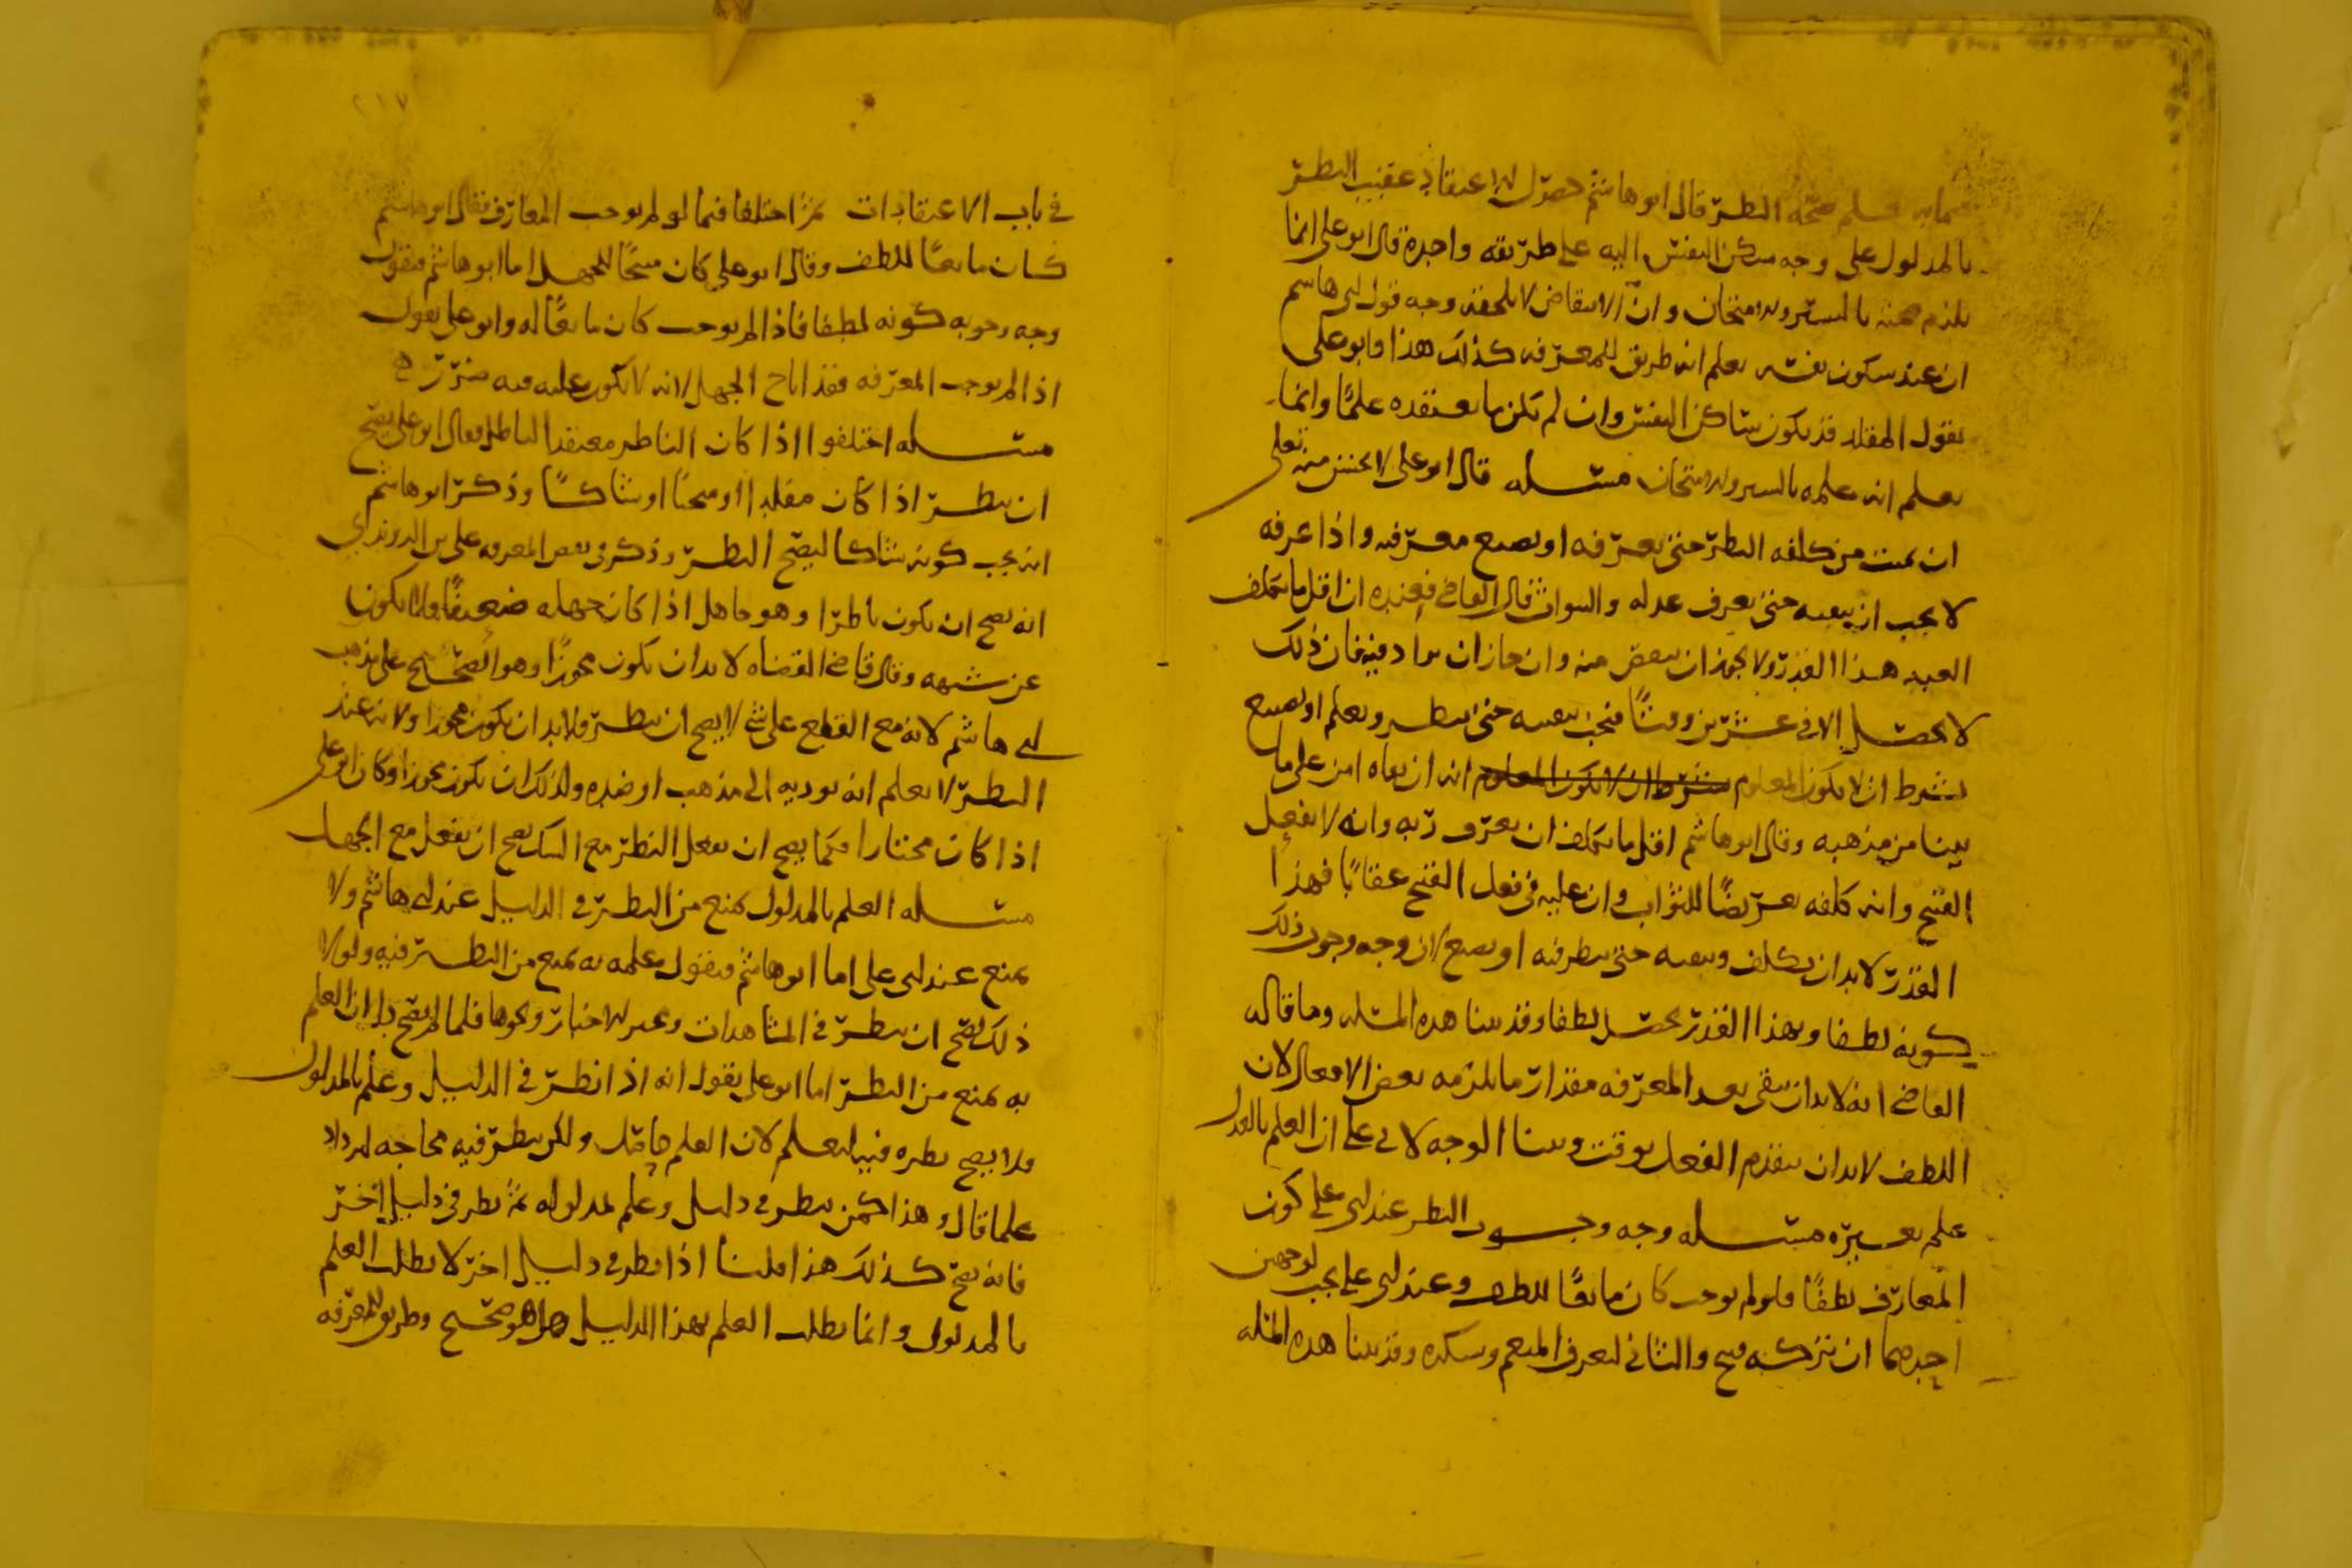 فيما به يعلم صحة النظر قال ابو هاشم حصول الاعتقاد عقيب النظر
بالمدلول على وجه سكن النفس اليه على طريقه واحدة قال ابو على انما
يلزم صحته بالسبر والامتحان وان الانتقاض لا يلحقه وجه قول ابى هاشم
ان عند سكون نفسه يعلم انه طريق للمعرفه كذلك هذا وابو على
يقول المقلد قد يكون ساكن النفس وان لم يكن ما يعتقده علمًا وانما
يعلم انه علمه بالسبر والامتحان مسله قال ابو على لا يحسن منه تعلى
ان يميت من كلفه النظر حتى يعرفه او يضيع معرفته واذا عرفه
لا يجب ان يبقيه حتى يعرف عدله والثواب قال القاضي فعنده ان اقل ما يكلف
العبد هذا القدر ولا يجوز ان ينقص منه وان جاز ان يزاد فيه فان ذلك
لا يحصل الا في عشرين وقتًا فيجب تبقيته حتى ينظر ويعلم او يضيع
بشرط ان لا يكون المعلوم بشرط ان لا يكون المعلوم انه ان بقاه امن على ما
بينا من مذهبه وقال ابو هاشم اقل ما يكلف ان يعرف ربه وانه لا يفعل
القبيح وانه كلفه تعريضًا للثواب وان عليه في فعل القبيح عقابًا فهذا
القدر لا بد ان يكلف ويبقيه حتى ينظر فيه او يضيع لان وجه وجوب ذلك
كونه لطفا وبهذا القدر يحصل لطفا وقد بينا هذه المسله وما قاله
القاضي انه لا بد ان يبقى بعد المعرفه مقدار ما يلزمه بعض الافعال لان
اللطف لا بد ان يتقدم الفعل بوقت وبينا الوجه لابي على ان العلم بالعدل
علم بغيره مسله وجه وجوب النظر عند ابى على كون
المعارف لطفًا فلو لم يوجب كان مانعًا للطف وعند ابى على يجب لوجهين
احدهما ان تركه قبيح والثاني ليعرف المنعم ويشكره وقد بينا هذه المسله
٢١٧
في باب الاعتقادات ثم اختلفا فيما لو لم يوجب المعارف فقال ابو هاشم
كان مانعًا للطف وقال ابو على كان مبيحًا للجهل اما ابو هاشم فيقول
وجه وجوبه كونه لطفا فاذا لم يوجب كان مانعًا له وابو على يقول
اذا لم يوجب المعرفه فقد اباح الجهل لانه لا يكون عليه فيه ضرر
مسله اختلفوا اذا كان الناظر معتقدا للباطل فقال ابو على يصح
ان ينظر اذا كان مقلدا او مبختًا او شاكًا وذكر ابو هاشم
انه يجب كونه شاكا ليصح النظر وذكر في نقض المعرفه على بن الروندي
انه يصح ان يكون ناظرًا وهو جاهل اذا كان جهله ضعيفًا ولا يكون
عن شبهه وقال قاضي القضاه لا بد ان يكون مجوزًا وهو الصحيح على مذهب
ابي هاشم لانه مع القطع على شي لا يصح ان ينظر ولا بد ان يكون مجوزا ولانه عند
النظر لا يعلم انه يوديه الى مذهب او ضده ولذلك ان يكون مجوزا وكان ابو على
اذا كان مختارا فكما يصح ان يفعل النظر مع الشك يصح ان يفعل مع الجهل
مسله العلم بالمدلول يمنع من النظر في الدليل عند ابي هاشم ولا
يمنع عند ابى على اما ابو هاشم فيقول علمه به يمنع من النظر فيه ولولا
ذلك لصح ان ينظر في المشاهدات وخبر الاخبار ونحوها فلما لم يصح دل ان العلم
به يمنع من النظر اما ابو على يقول انه اذا نظر في الدليل وعلم بالمدلول
فلا يصح نظره فيه ليعلم لان العلم حاصل ولكن ينظر فيه محاجه ليزداد
علما قال وهذا كمن ينظر في دليل وعلم لمدلوله ثم نظر في دليل اخر
فانه يصح كذلك هذا قلنا اذا نظر في دليل اخر لا يطلب العلم
بالمدلول وانما يطلب العلم بهذا الدليل هل هو صحيح وطريق للمعرفه